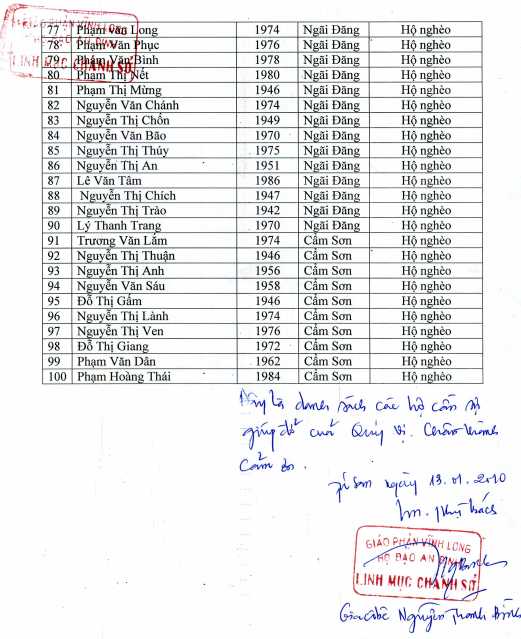 GIÁO PHẬN VĨNH LONG
LINH MỤC CHÁNH SỞ
77 Phạm Văn Long 1974 Ngãi Đăng Hộ nghèo
78 Phạm Văn Phục 1976 Ngãi Đăng Hộ nghèo
79 Phạm Văn Bình 1978 Ngãi Đăng Hộ nghèo
80 Phạm Thị Nết 1980 Ngãi Đăng Hộ nghèo
81 Phạm Thị Mừng 1946 Ngãi Đăng Hộ nghèo
82 Nguyễn Văn Chánh 1974 Ngãi Đăng Hộ nghèo
83 Nguyễn Thị Chồn 1949 Ngãi Đăng Hộ nghèo
84 Nguyễn Văn Bão 1970 Ngãi Đăng Hộ nghèo
85 Nguyễn Thị Thúy 1975 Ngãi Đăng Hộ nghèo
86 Nguyễn Thị An 1951 Ngãi Đăng Hộ nghèo
87 Lê Văn Tâm 1986 Ngãi Đăng Hộ nghèo
88 Nguyễn Thị Chích 1947 Ngãi Đăng Hộ nghèo
89 Nguyễn Thị Trào 1942 Ngãi Đăng Hộ nghèo
90 Lý Thanh Trang 1970 Ngãi Đăng Hộ nghèo
91 Trương Văn Lắm 1974 Cẩm Sơn Hộ nghèo
92 Nguyễn Thị Thuận 1946 Cẩm Sơn Hộ nghèo
93 Nguyễn Thị Anh 1956 Cẩm Sơn Hộ nghèo
94 Nguyễn Văn Sáu 1958 Cẩm Sơn Hộ nghèo
95 Đỗ Thị Gấm 1946 Cẩm Sơn Hộ nghèo
96 Nguyễn Thị Lành 1974 Cẩm Sơn Hộ nghèo
97 Nguyễn Thị Ven 1976 Cẩm Sơn Hộ nghèo
98 Đỗ Thị Giang 1972 Cẩm Sơn Hộ nghèo
99 Phạm Văn Dân 1962 Cẩm Sơn Hộ nghèo
100 Phạm Hoàng Thái 1984 Cẩm Sơn Hộ nghèo
Đây là danh sách các hộ cần sự
giúp đỡ của Quý vị. Chân thành
Cảm ơn.
ngày 13.01.2010
Lm. phụ trách
GIÁO PHẬN VĨNH LONG
HỌ ĐẠO AN ĐỊNH
LINH MỤC CHÁNH SỞ
Nguyễn Thanh